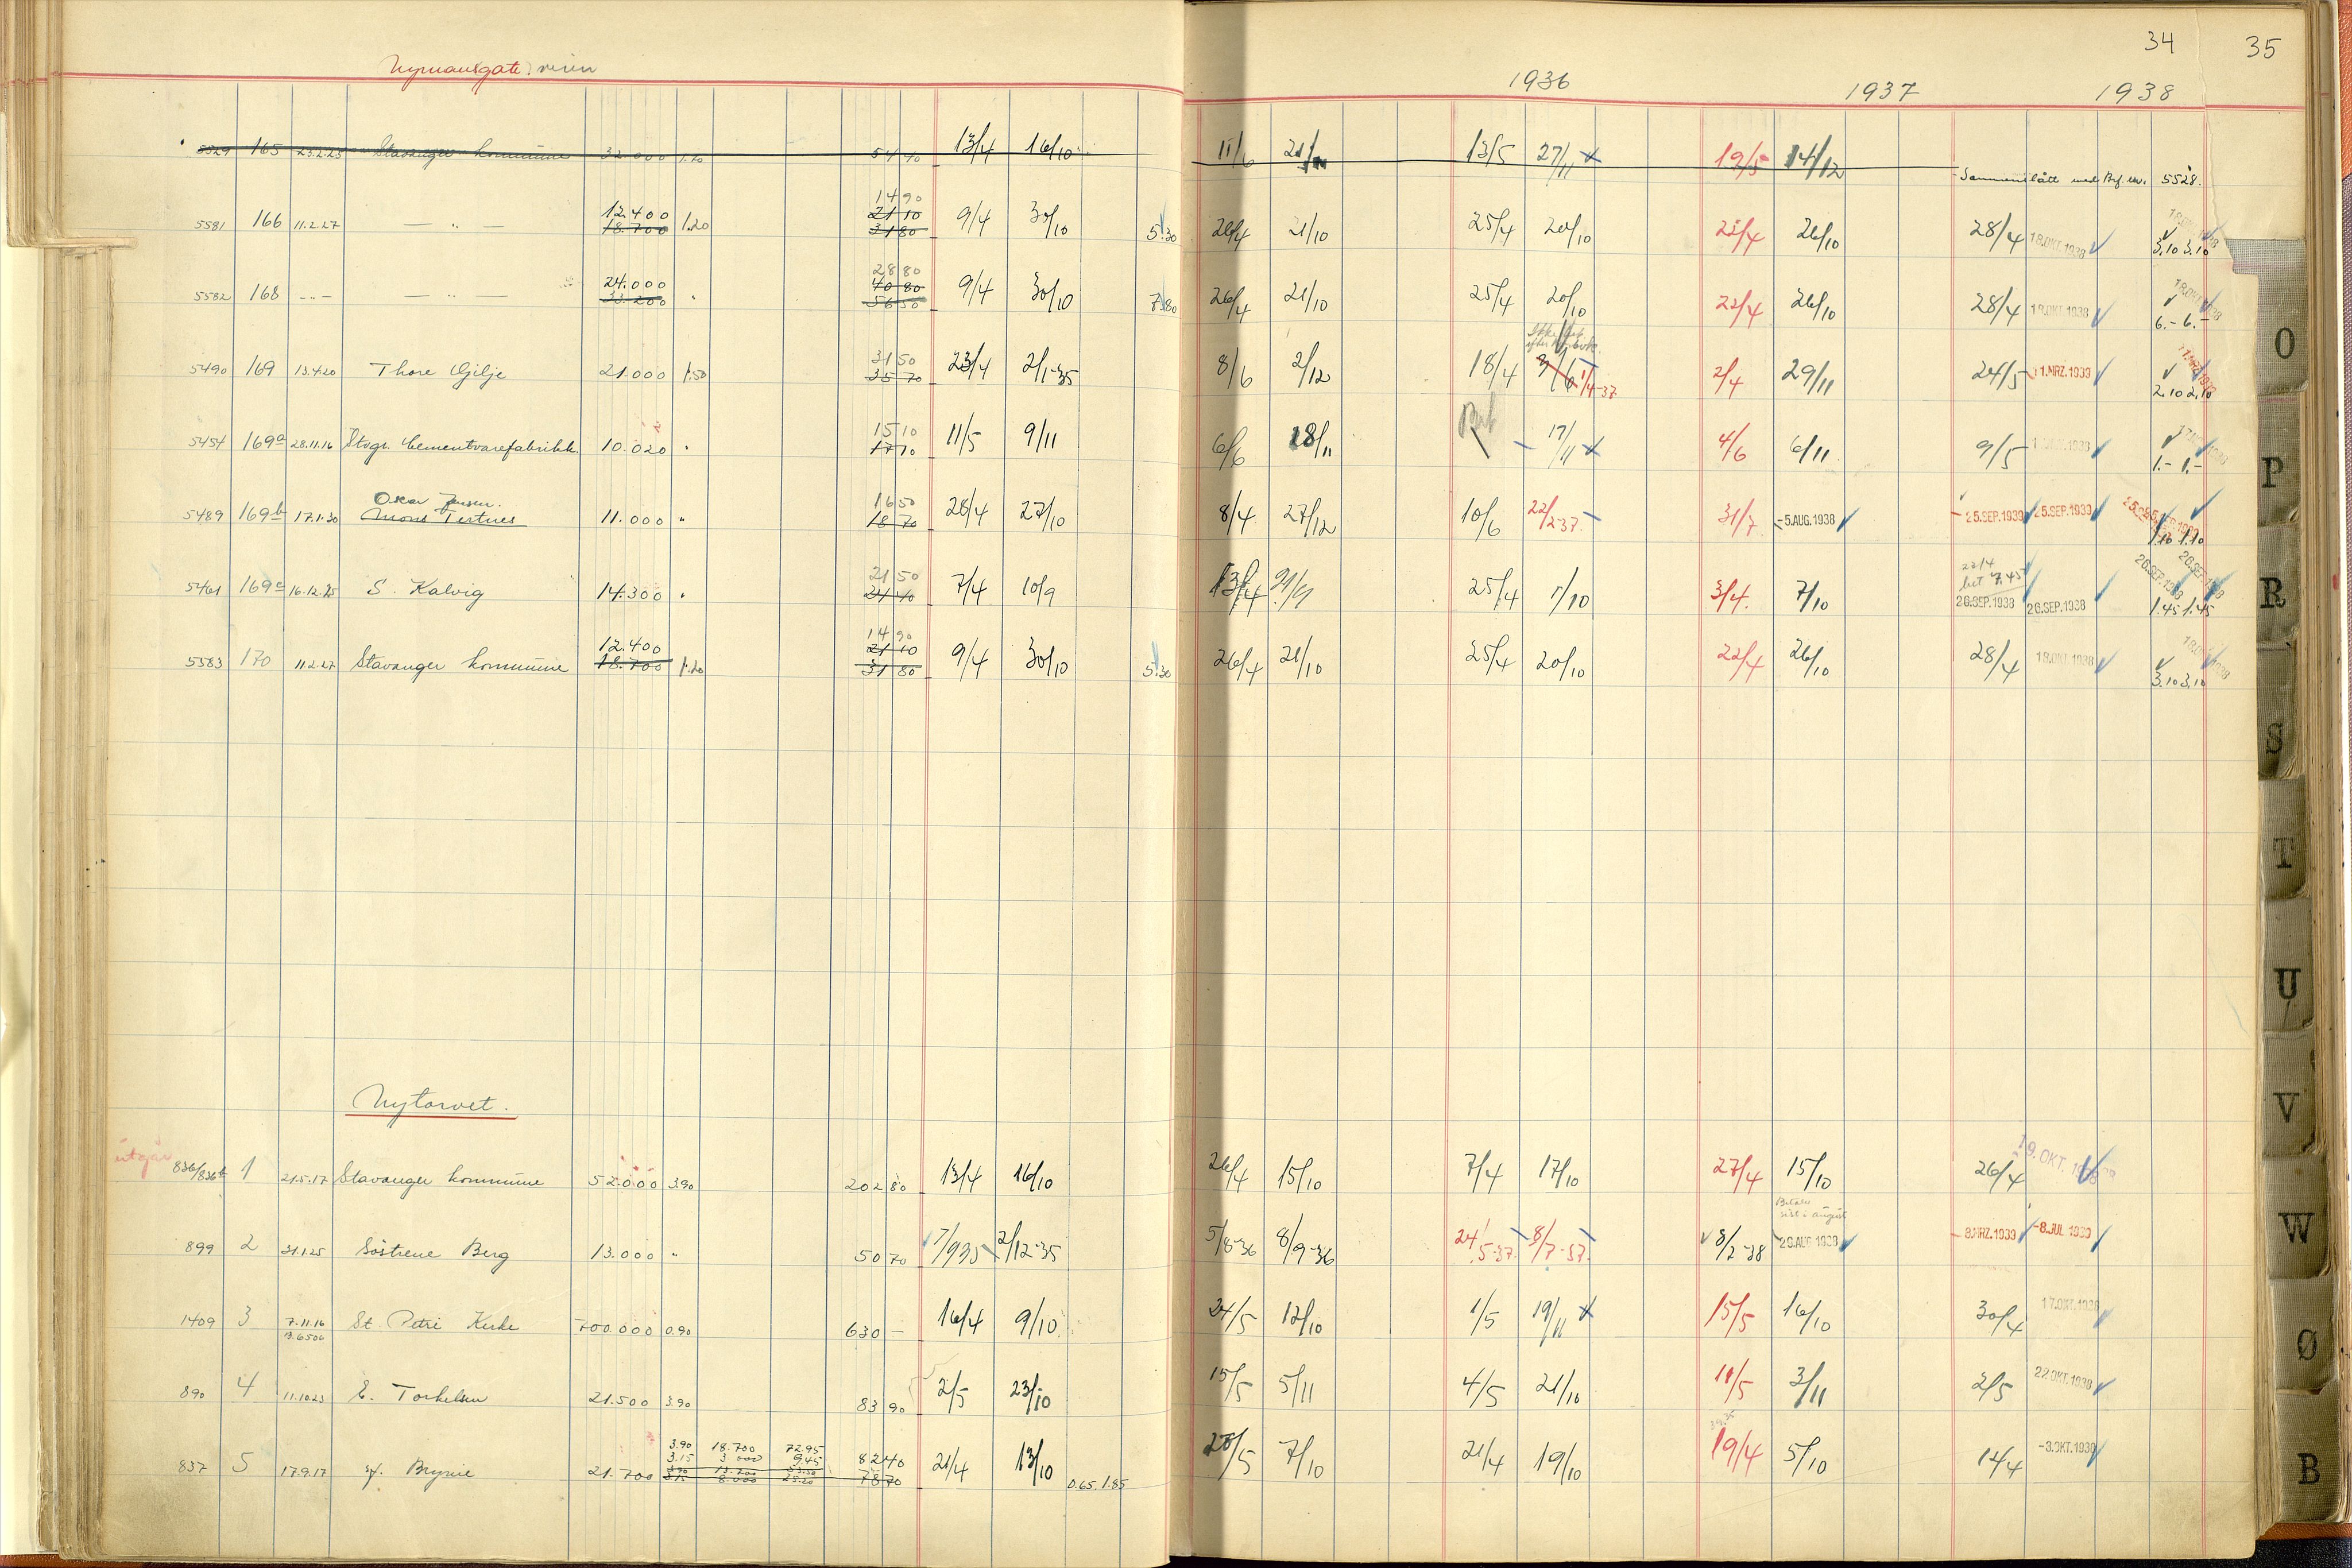 34 35
Nymansgate. veien
1936 1937 1938
5529 165 23.2.25 Stavanger kommune 32.000 1.70 54 40 13/4 16/10 11/6 13/5 27/11 19/5 14/12 Sammenslått med Brf. nr. 5528.
14 90
12.400 21 10
5581 166 11.2.27 — " — 18.700 1.20 31 80 9/4 30/10 5.30 26/4 21/10 25/4 20/10 22/4 26/10 28/4 18.OKT.1938 3.10 3.10
28 80
24.000 40 80
5582 168 - " - — " — 33.200 " 56 50 9/4 30/10 7.80 26/4 21/10 25/4 20/10 22/4 26/10 28/4 18.OKT.1938 6.- 6.-
31 50
5490 169 13.4.20 Thore Gilje 21.000 1.50 35 70 23/4 2/1-35 8/6 2/12 18/4 1/4-37 2/4 29/11 24/5 11.MRZ.1939 2.10 2.10
15 10
5454 169a 28.11.16 Stvgr. Cementvarefabrikk. 10.020 " 17 10 11/5 9/11 6/6 18/11 Bet 17/11 4/6 6/11 9/5 1.- 1.-
Oscar Jensen. 16 50
5489 169b 17.1.30 Mons Tertnes 11.000 " 18 70 28/4 27/10 8/4 27/12 10/6 22/2 37. 31/7 -5.AUG.1938 25.SEP.1939 25.SEP.1939 1.10 1.10
21 50 22/4 bet 7.45
5461 169c 16.12.25 S. Kalvig 14.300 " 24 40 7/4 10/9 13/4 21/9 25/4 1/10 3/4. 7/10 26.SEP.1938 26.SEP.1938 1.45 1.45
14 90
12.400 21 10
5583 170 11.2.27 Stavanger kommune 18.700 1.20 31 80 9/4 30/10 5.30 26/4 21/10 25/4 20/10 22/4 26/10 28/4 18.OKT.1938 3.10 3.10
Nytorvet.
utgår 836/836b 1 21.5.17 Stavanger kommune 52.000 3.90 202 80 13/4 16/10 26/4 15/10 7/4 17/10 27/4 15/10 26/4 19.OKT.1938
Betales sist i august
899 2 31.1.25 Söstrene Berg 13.000 " 50 70 7/9 35 2/12-35 5/8-36 8/9-36 24/5-37. 8/7-37. 8/2-38 29.AUG 1938 8.MRZ.1939 -8.JUL 1939
1409 3 7.11.16 St. Petri Kirke 700.000 0.90 630 — 16/4 9/10 24/5 12/10 1/5 19/11 15/5 16/10 30/4 17.OKT.1938
890 4 11.10.23 E. Torkelsen 21.500 3.90 83 90 2/5 23/10 15/5 5/11 4/5 21/10 11/5 3/11 2/5 22.OKT.1938
3.90 18.700 72.95
3.15 3.000 9.45 82 40
837 5 17.9.17 Bryne 21.700 8.000 25.20 78 70 21/4 13/10 0.65. 1.85 28/5 7/10 21/4 19/10 19/4 5/10 14/4 -3.OKT.1938
O
P
R
S
T
U
V
W
Ø
B